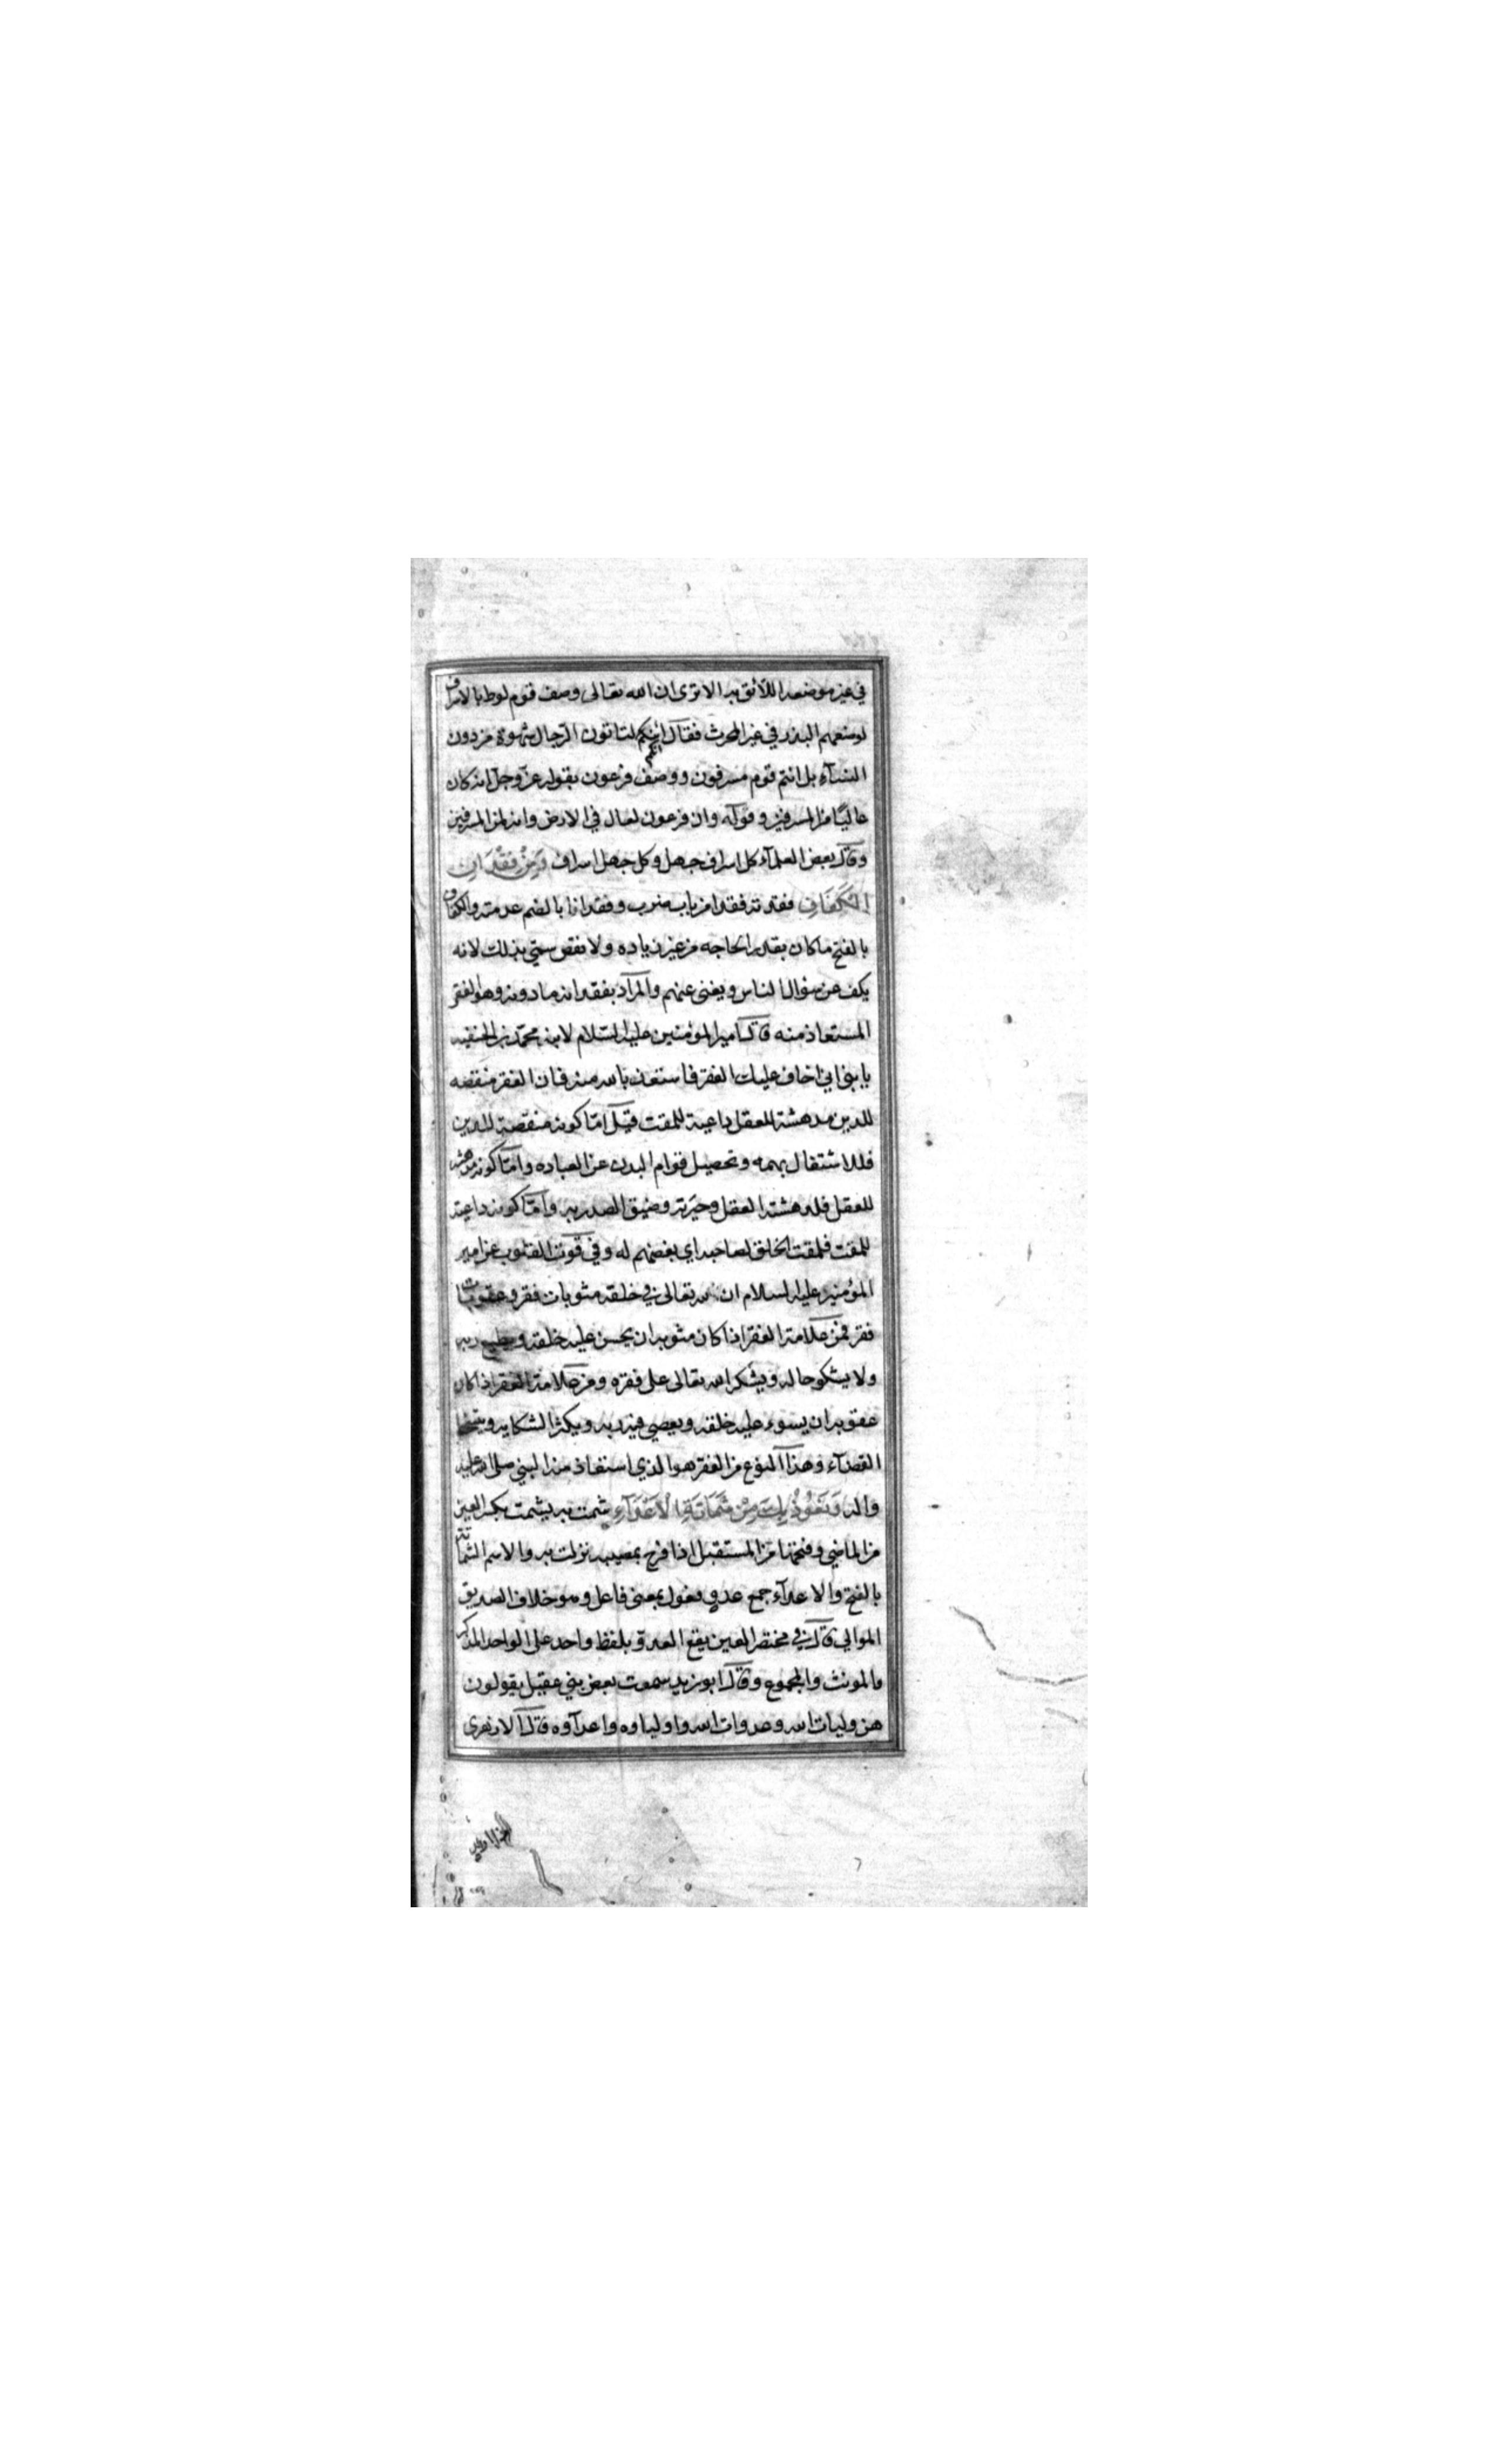 في غير موضعه اللائق به الا ترى ان الله تعالى وصف قوم لوط بالاسراف
لوضعهم البذر في غير الحرث فقال انكم لتاتون الرجال شهوة من دون
النسآء بل انتم قوم مسرفون ووصف فرعون بقوله عز وجل انه كان
عاليًا من المسرفين وقوله وان فرعون لعال في الارض وانه لمن المسرفين
وقال بعض العلمآء كل اسراف جهل وكل جهل اسراف وَمِنْ فِقْدَانِ
الْكَفَافِ فقدته فقدا من باب ضرب وفقدانا بالضم عدمته والكفاف
بالفتح ما كان بقدر الحاجه من غير زياده ولا نقص سمّي بذلك لانه
يكف عن سؤال الناس ويغنى عنهم والمراد بفقدانه ما دونه وهو الفقر
المستعاذ منه قال امير المؤمنين عليه السّلام لابنه محمّد بن الحنفيه
يا بني اني اخاف عليك الفقر فاستعذ بالله منه فان الفقر منقصه
للدين مدهشة للعقل داعية للمقت قيل امّا كونه منقصة للدين
فللاشتغال بهمه وتحصيل قوام البدن عن العباده وامّا كونه مدهشه
للعقل فلدهشة العقل وحيرته وضيق الصدر به وامّا كونه داعية
للمقت فلمقت الخلق لصاحبه اي بغضهم له وفي قوت القلوب عن امير
المؤمنين عليه السلام ان لله تعالى في خلقه مثوبات فقر وعقوبات
فقر فمن علامة الفقر اذا كان مثوبه ان يحسن عليه خلقه ويطيع ربه
ولا يشكو حاله ويشكر الله تعالى على فقره ومن علامة الفقر اذا كان
عقوبه ان يسوء عليه خلقه ويعصي فيه ربه ويكثر الشكايه ويتسخط
القضآء وهذا النوع من الفقر هو الذي استعاذ منه النبي صلى الله عليه
واله وَنَعُوذُ بِكَ مِنْ شَمَاتَةِ الْاَعْدَآءِ شمت به يشمت بكسر العين
من الماضي وفتحها من المستقبل اذا فرح بمصيبه نزلت به والاسم الشماتة
بالفتح والاعدآء جمع عدو فعول بمعنى فاعل وهو خلاف الصديق
الموالي قال في مختصر العين يقع العدو بلفظ واحد على الواحد المذكر
والمونث والمجموع وقال ابو زيد سمعت بعض بني عقيل يقولون
هن وليات الله وعدوات الله واولياوه واعدآوه قال الازهرى